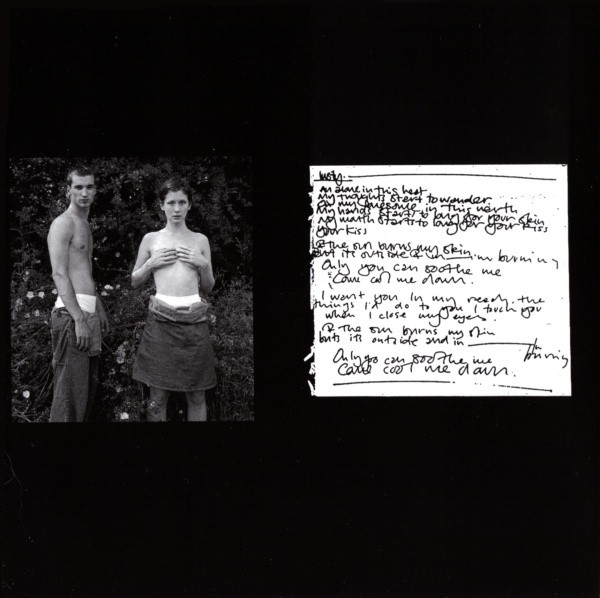 Misty.
Am alone in this heat
My thoughts start to wander
On my lonesome in this warmth
My hands starts to long for your skin
My mouth starts to long for your kiss
your kiss
the sun burns my skin
but its outside & in im burning
Only you can soothe me
Came cool me down.
I want you In my need. the
things I'd do to you I touch you
when I close my eyes.
the sun burns my skin
buts its outside and in
Im burning
Only you can soothe me
Came cool me down.